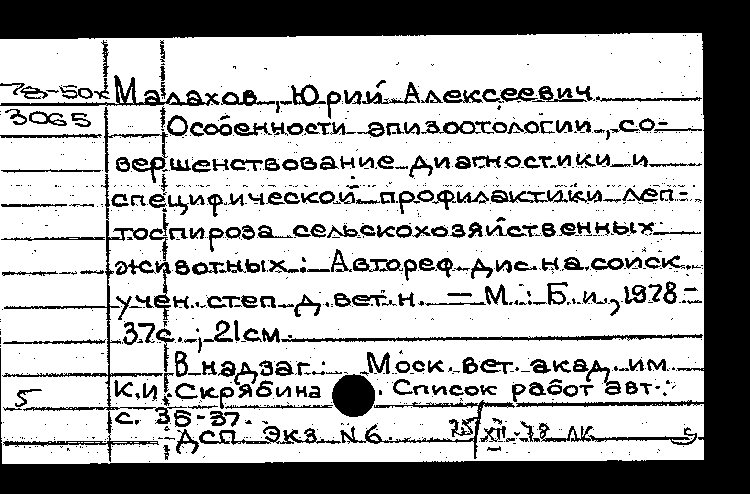 78-50к Малахов, Юрий Алексеевич
3065 Особенности эпизоотологии, со-
вершенствование диагностики и
специфической профилактики леп-
тоспироза сельскохозяйственных
животных: Автореф. дис. на соиск.
учен. степ. д. вет. н. — М.: Б. и., 1978 -
37с.; 21см.
В надзаг.: Моск. вет. акад. им
5 К.И. Скрябина. Список работ авт.:
с. 35-37.
ДСП Экз. N6. 25/XII-78 ЛК